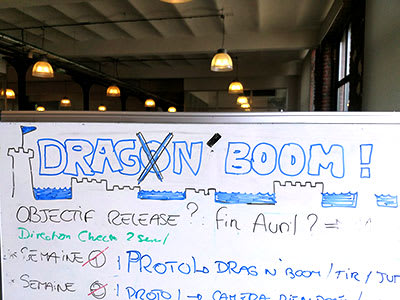 DRAGON' BOOM!
OBJECTIF RELEASE ? : fin Avril ? =
Direction Check ?
SEMAINE 1 | PROTO DRAG N' BOOM / TIR /
SEMAINE 2 | PROTO | → CAMERA